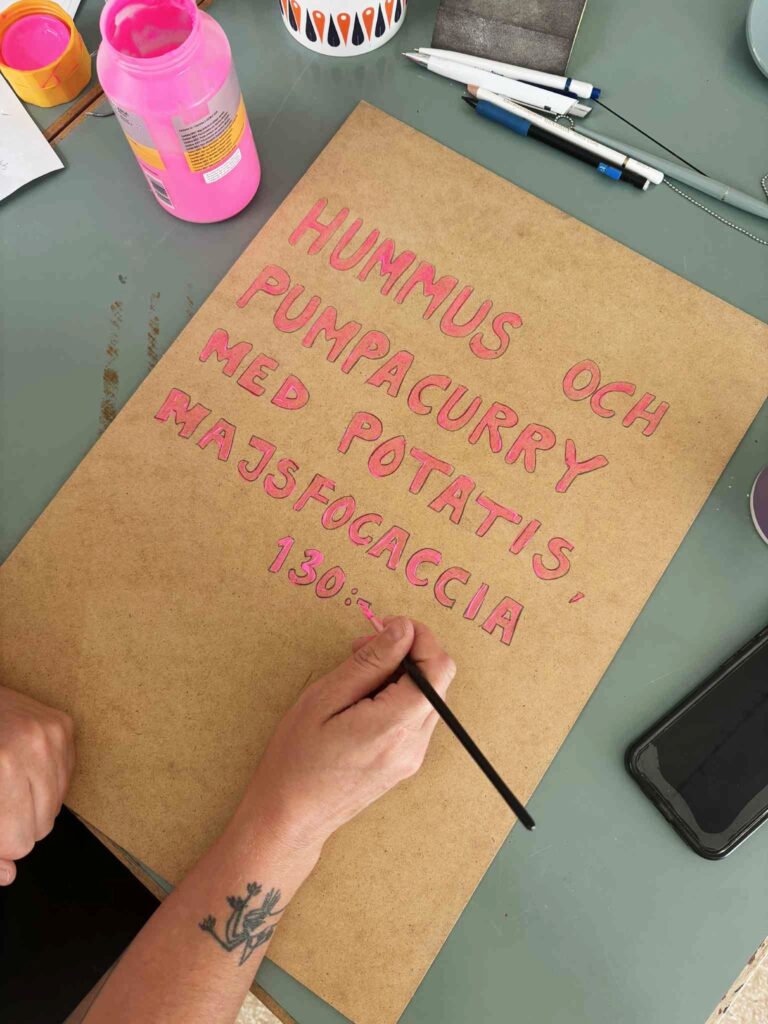 HUMMUS OCH
PUMPACURRY
MED POTATIS,
MAJSFOCACCIA
130:-